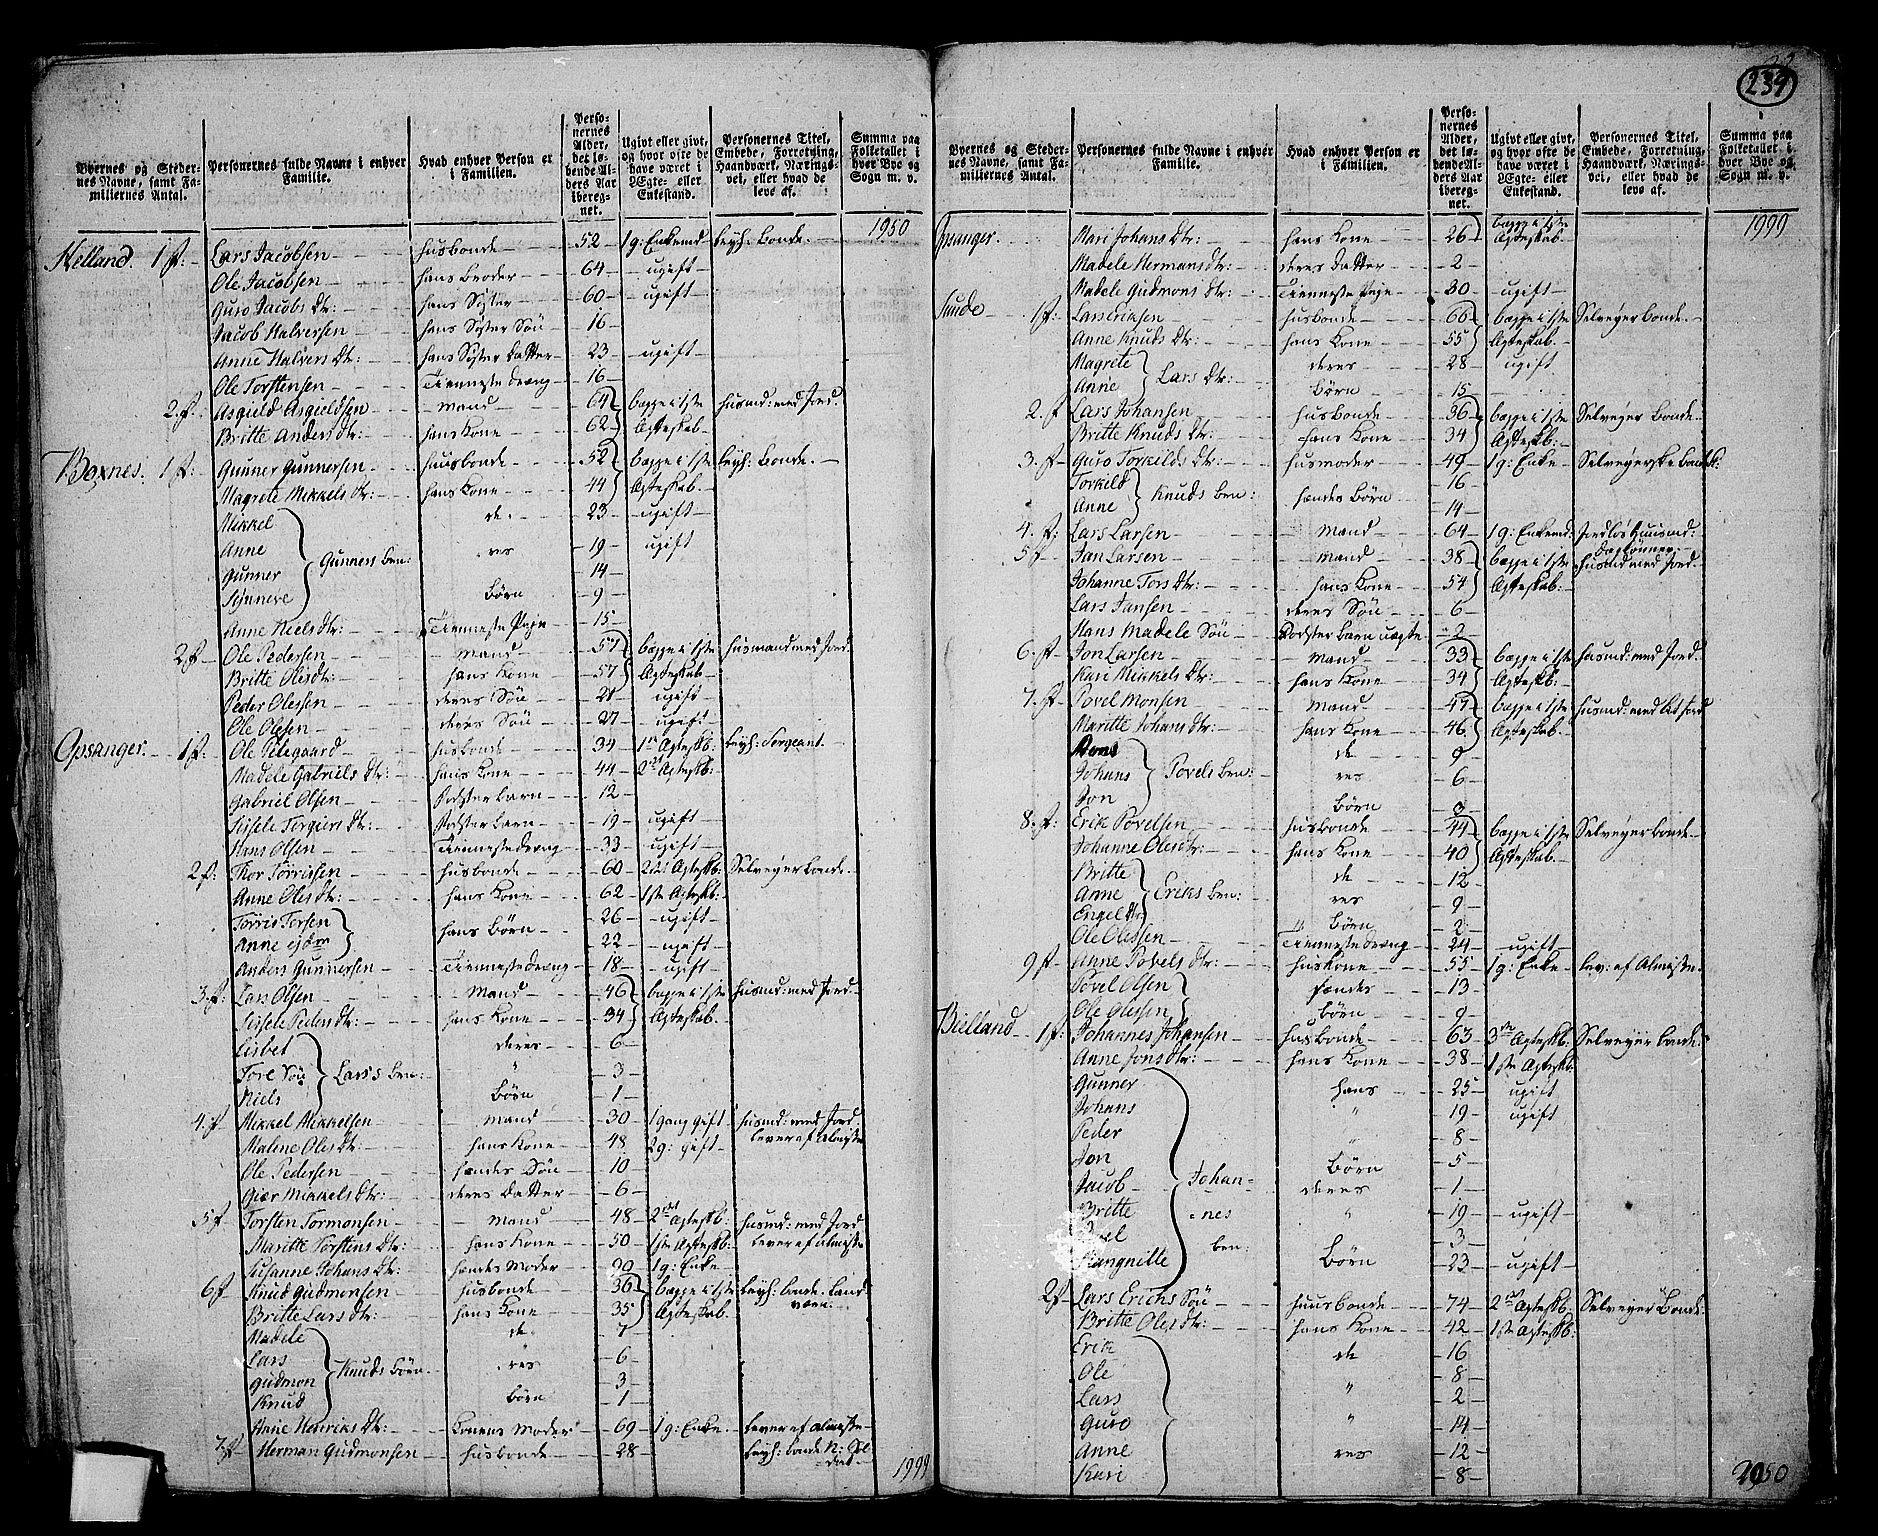 239
Byernes og Stedernes Navne, samt Familiernes Antal.
Personernes fulde Navne i enhver Familie.
Hvad enhver Person er i Familien.
Personernes Alder, det løbende Alders Aar iberegnet.
Ugivt eller givt, og hvor ofte de have været i Ægte- eller Enkestand.
Personernes Titel, Embede, Forretning, Haandværk, Næringsvei, eller hvad de leve af.
Summa paa Folketallet i hver Bye og Sogn m. v.
1950
Helland. 1 f: Lars Jacobsen husbonde 52 1 g: Enkemd leyl: bonde.
Ole Jacobsen hans broder 64 ugift
Guro Jacobs dtr: hans Syster 60 ugift
Jacob Halversen hans Syster Søn 16
Anne Halvers dtr: hans Syster datter 23 ugift
Ole Torstensen Tienneste dreng 16
2. f: Asguld Asguldsen mand 64 begge i 1ste husmd: med Jord.
Britte Anders dtr: hans Kone 62 Ægteskab.
Boxnes. 1 f: Gunner Gunnersen husbonde 52 begge i 1ste leyl: bonde.
Magrete Mikkels dtr: hans Kone 44 Ægteskab.
Mikkel de 23 ugift
Anne res 19 ugift
Gunner Gunners ben: 14
Synneve børn 9
Anne Niels dtr: Tienneste Pige 15
2 f Ole Pedersen mand 57 begge i 1ste husmand med Jord
Britte Oles dtr: hans Kone 57 Ægteskab
Peder Olessen deres Søn 21 ugift
Ole Olesen deres Søn 27 ugift
Opsanger. 1 f: Ole Pelegaard husbonde 34 1ste Ægteskb: leyl: Sergeant.
Madele Gabriels dtr: hans Kone 44 2det Ægteskb:
Gabriel Olsen Fodster barn 12
Sissele Torgiers dtr: Fodster barn 19 ugift
Hans Olsen Tienneste dreng 33 ugift
2 f: Thor Tørrissen husbonde 60 2det Ægteskb: Selveyer bonde.
Anne Oles dtr: hans Kone 62 1ste Ægteskb:
Torris Torsen hans børn 26 ugift
Anne ejdm 22 ugift
Anders Gunnersen Tienneste dreng 18 ugift
3. f: Lars Olsen mand 46 begge i 1ste husmd: med Jord
Sissele Peders dtr: hans Kone 34 Ægteskab.
Lisbet deres 6
Tore Søn Lars's ben: " 3
Niels børn 1
4. f Mikkel Mikkelsen mand 30 1 gang gift husmd: med Jord
Malene Oles dtr: hans Kone 48 2 g: gift lever af almisse
Ole Pedersen hendes Søn 10
Giær Mikkels dtr: deres datter 6
5 f Torsten Tormonsen mand 48 2det Ægteskb: husmd: med Jord
Maritte Torstens dtr: hans Kone 50 1ste Ægteskb: lever af almisse
Susanne Johans dtr: hendes moder 90 1 g: Enke
6 f Knud Gudmonsen husbonde 36 begge i 1ste leyl: bonde. Land
Britte Lars dtr: hans Kone 35 Ægteskab. værn.
Madele de 7
Lars res 6
Gudmon Knuds børn 3
Knud børn 1
Anne Henriks dtr: Konens moder 69 1 g: Enke lever af almisse
7 f Herman Gudmonsen husbonde 28 leyl: bonde N: Sol
dat
1999
Byernes og Stedernes Navne, samt Familiernes Antal.
Personernes fulde Navne i enhver Familie.
Hvad enhver Person er i Familien.
Personernes Alder, det løbende Alders Aar iberegnet.
Ugivt eller givt, og hvor ofte de have været i Ægte- eller Enkestand.
Personernes Titel, Embede, Forretning, Haandværk, Næringsvei, eller hvad de leve af.
Summa paa Folketallet i hver Bye og Sogn m. v.
1999
Mari Johans dtr: hans Kone 26 begge i 1ste Ægteskab.
Madele Hermans dtr: deres datter 2
Madele Gudmons dtr: Tienneste Pige 30 ugift
Sunde 1 f: Lars Eriksen husbonde 66 begge i 1ste Selveyer bonde
Anne Knuds dtr: hans Kone 55 Ægteskab.
Magrete deres 28 ugift
Anne Lars dtr: børn 15
2. f Lars Johansen husbonde 36 begge i 1ste Selveyer bonde
Britte Knuds dtr: hans Kone 34 Ægteskb:
3. f Guro Torkilds dtr: husmoder 49 1 g: Enke
Torkild Knuds ben: hendes børn 16
Anne 14
4. f: Lars Larsen mand 64 1 g: Enkemd: Jordløs husmd:
5 f Jan Larsen mand 38 begge i 1ste husmd med Jord.
Johanne Tors dtr: hans Kone 54 Ægteskab:
Lars Jansen deres Søn 6
Hans Madele Søn Fodster barn uægte 2
6. f Jon Larsen mand 33 begge i 1ste husmd: med Jord.
Kari Mikkels dtr: hans Kone 34 Ægteskb:
7. f Povel Monsen mand 47 begge i 1ste husmd: med lit Jord
Maritte Johans dtr: hans Kone 46 Ægteskab.
Mons de 9
Johans Povels ben: res 6
Jon børn 3
8. f: Erik Povelsen husbonde 44 begge i 1ste Selveyer bonde
Johanne Oles dtr: hans Kone 40 Ægteskab.
Britte de 12
Anne Eriks ben: res 9
Engel dtr " børn 2
Ole Olessen Tienneste dreng 24 ugift
9 f Anne Povels dtr: huskone 55 1 g: Enke lev: af Almisse.
Povel Olsen hendes 13
Ole Olessen børn 9
Bielland 1 f: Johannes Johansen husbonde 63 3die Ægteskb. Selveyer bonde.
Anne Jons dtr: hans Kone 38 1ste Ægteskb:
Gunner hans 25 ugift
Johans " 19 ugift
Peder " 8
Jon børn 5
Jacob Johan- deres 1
Britte nes " 19 ugift
ben: 3
Rangnilde børn 23 ugift
2 f Lars Erichs Søn huusbonde 74 2det Ægteskb: Selveyer bonde
Britte Oles dtr: hans Kone 42 1ste Ægteskb:
Erik de 16
Ole 8
Lars " 2
Guro " 14
Anne res 12
Kari 8
2050